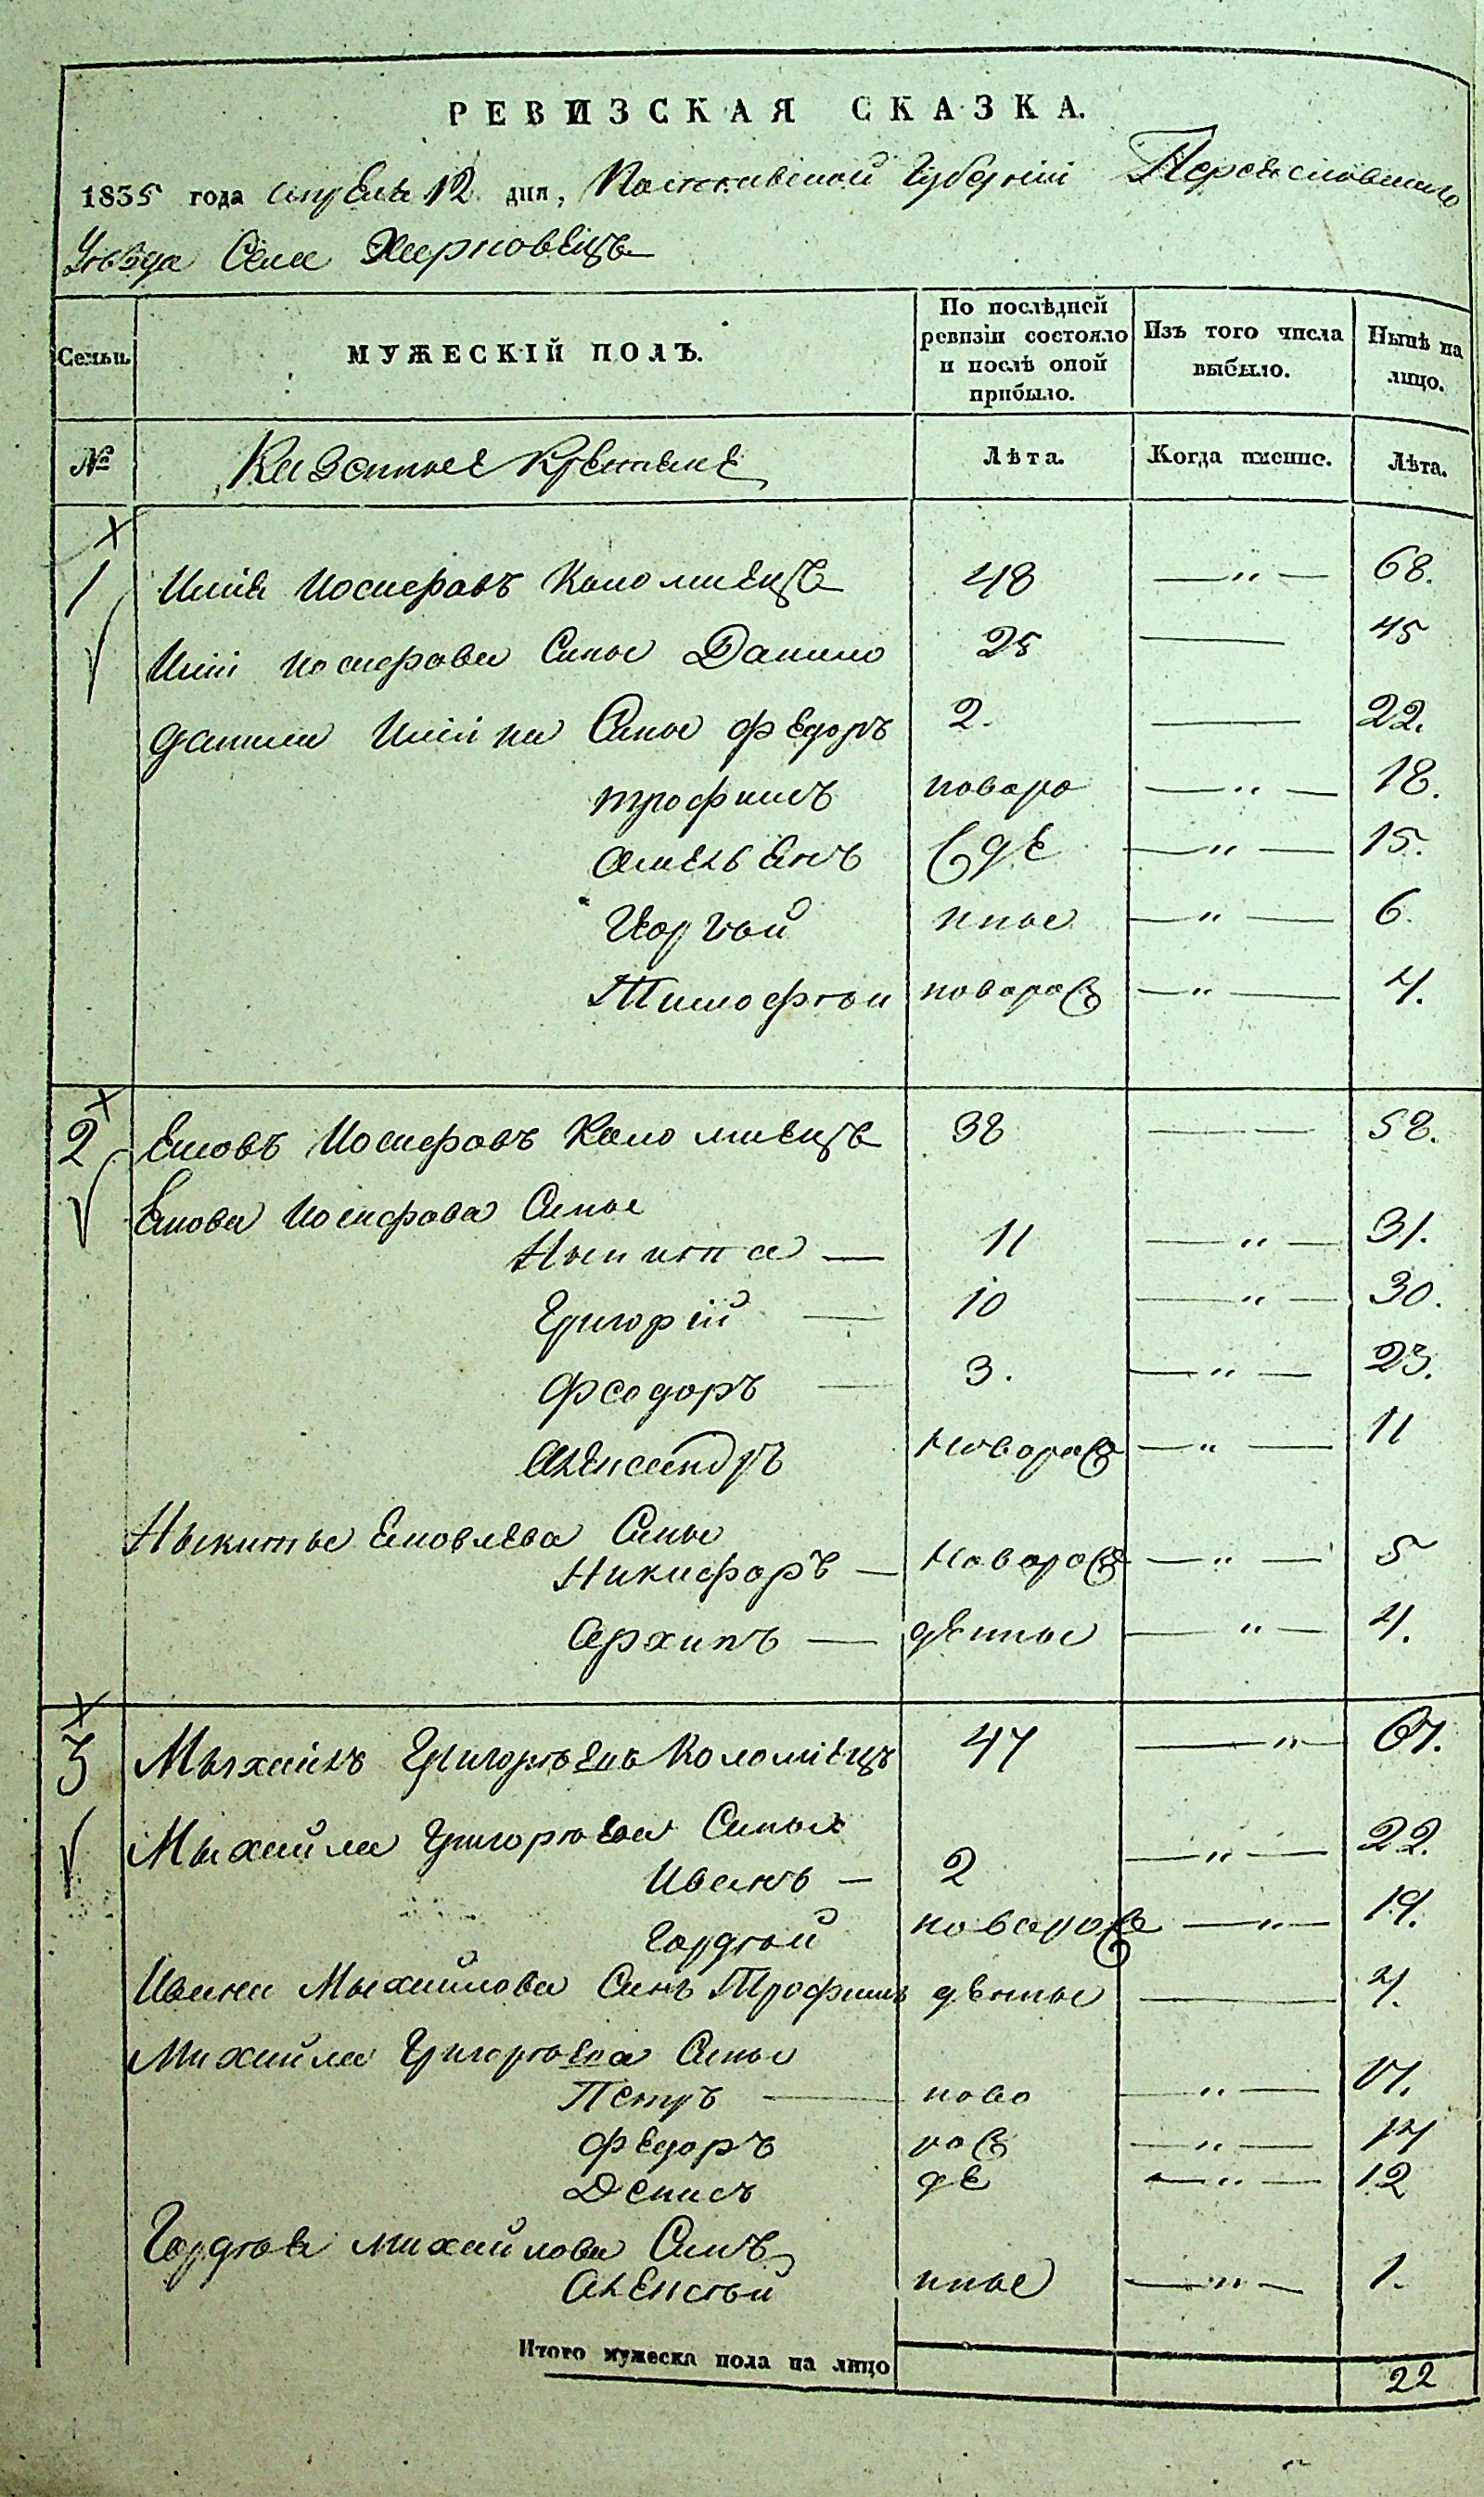 РЕВИЗСКАЯ СКАЗКА.
1835 года апреля 12 дня, Полтавской Губернiи Переяславского
Уезда Села Жерновецъ
Семьи.
МУЖЕСКІЙ ПОЛЪ.
По послѣдней ревизіи состояло и послѣ оной прибыло.
Изъ того числа выбыло.
Нынѣ на лицо.
№ Казенные Крестяне Лѣта. Когда имянно. Лѣта.
1 Илія Иосифовъ Коломиецъ 48 —„— 68.
Иліи Иосифова Сыны Данило 25 — 45
Данила Иліина Сыны Федоръ 2. — 22.
Трофимъ новоро —„— 18.
Омельянъ жде —„— 15.
Гордѣй нные —„— 6.
Тимофѣй новорож —„— 4.
2 Яковъ Иосифовъ Коломиецъ 38 — — 58.
Якова Иосифова Сыны
Ныкита — 11 —„— 31.
Григорій — 10 —„— 30.
Феодоръ — 3. —„— 23.
Александръ Новорож —„— 11
Ныкиты Яковлева Сыны
Никифоръ — Новорож —„— 5
Архипъ — денны —„— 4.
3 Мыхайлъ Григорьевъ Коломіецъ 47 —„— 67.
Мыхайла Григорьева Сыны
Иванъ — 2 —„— 22.
Гордѣй новорож —„— 19.
Ивана Мыхайлова Сынъ Трофимъ денны — 4.
Михайла Григорьева Сыны
Петръ — ново —„— 17.
Федоръ рож —„— 14
Денисъ де —„— 12
Гордѣя Михайлова Сынъ
Алексѣй нные —„— 1.
Итого мужеска пола на лицо 22